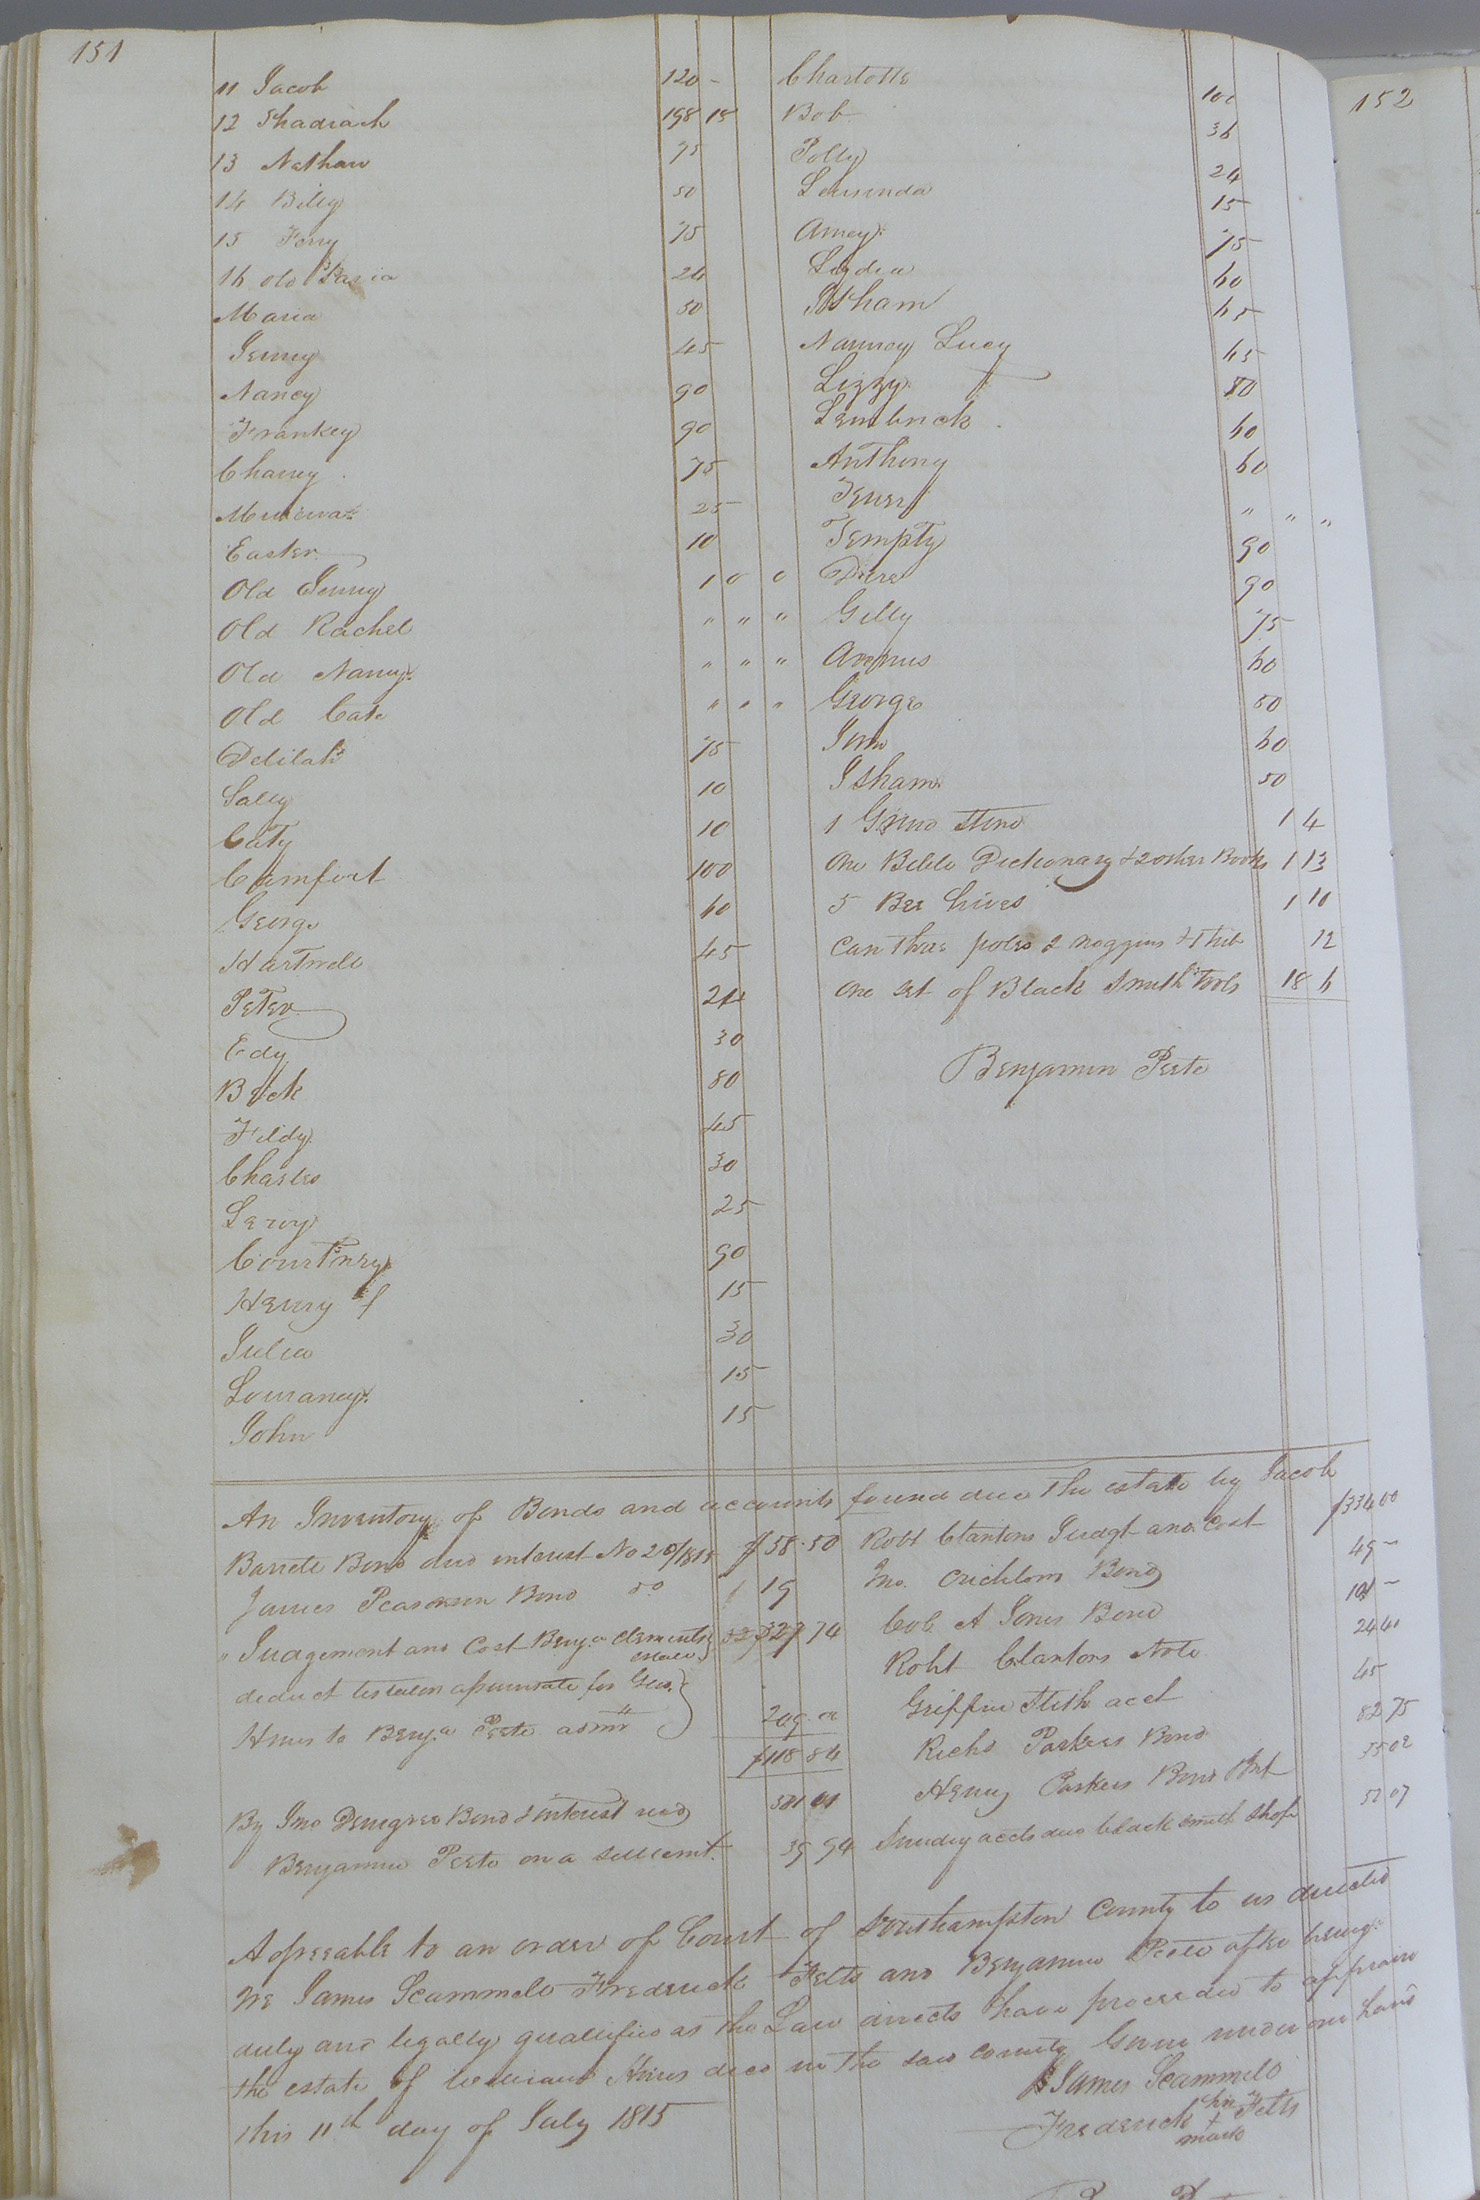 151
11 Jacob 120 -
12 Shadrach 198 18
13 Nathan 75
14 Billy 50
15 Ferry 75
16 Old 24
Maria 50
Jenny 45
Nancy 90
Frankey 90
Charry 75
25
Easter 10
Old Jenny 1 0 0
Old Rachel " " "
Old Nancy " " "
Old Cate " " "
Delilah 75
Sally 10
Caty 10
Comfort 100
George 60
Hartwell 45
Peter 24
Edy 30
Beck 80
Fildy 45
Charles 30
Leroy 25
Courtney 90
Henry 15
Julia 30
Louraney 15
John 15
Charlotte 100
Bob 36
Polly 24
Lousinda 15
Amey 75
Lydia 60
Isham 65
Nanney Lucy 65
Lizzy 80
Lembrick 60
Anthony 60
" " "
Tempty 90
90
Gilly 75
60
George 50
60
Isham 50
1 Grind Stone 1 4
One Bible Dictionary & 2 other Books 1 13
5 Bee hives 1 10
Can three poles 2 noggins & 1 12
One set of Black Smith Tools 18 6
Benjamin Peete
An Inventory of Bonds and accounts found due the estate by Jacob
Barrett Bond due interest No 20/1815 $58.50
James Pearson Bond 19
" Judgement and Cost Benja Clements estate 327 74
deduct for Geo.
Hines to Benja Peete admr 209
$118 84
By Jno Bond & interest recd
Benjamin Peete on a settlemt. 39 94
Robt Clantons Judgt and Cost $334 00
Jno. Crichlows Bond 49 -
Col A Jones Bond 101 -
Robt Clantons Note 24 40
Griffin Stith acct 45
Richd Parkers Bond 82 75
Henry Parkers Bond 55 02
Sundry accts due black smith Shop 52 07
Agreeable to an order of Court of Southampton County to us directed
We James Scammell Frederick Felts and Benjamin Peete after being
duly and legally qualified as the Law directs have proceeded to appraise
the estate of William Hines decd in the said county Given under our hand
this 11th day of July 1815
James Scammell
Frederick his + mark Felts
152